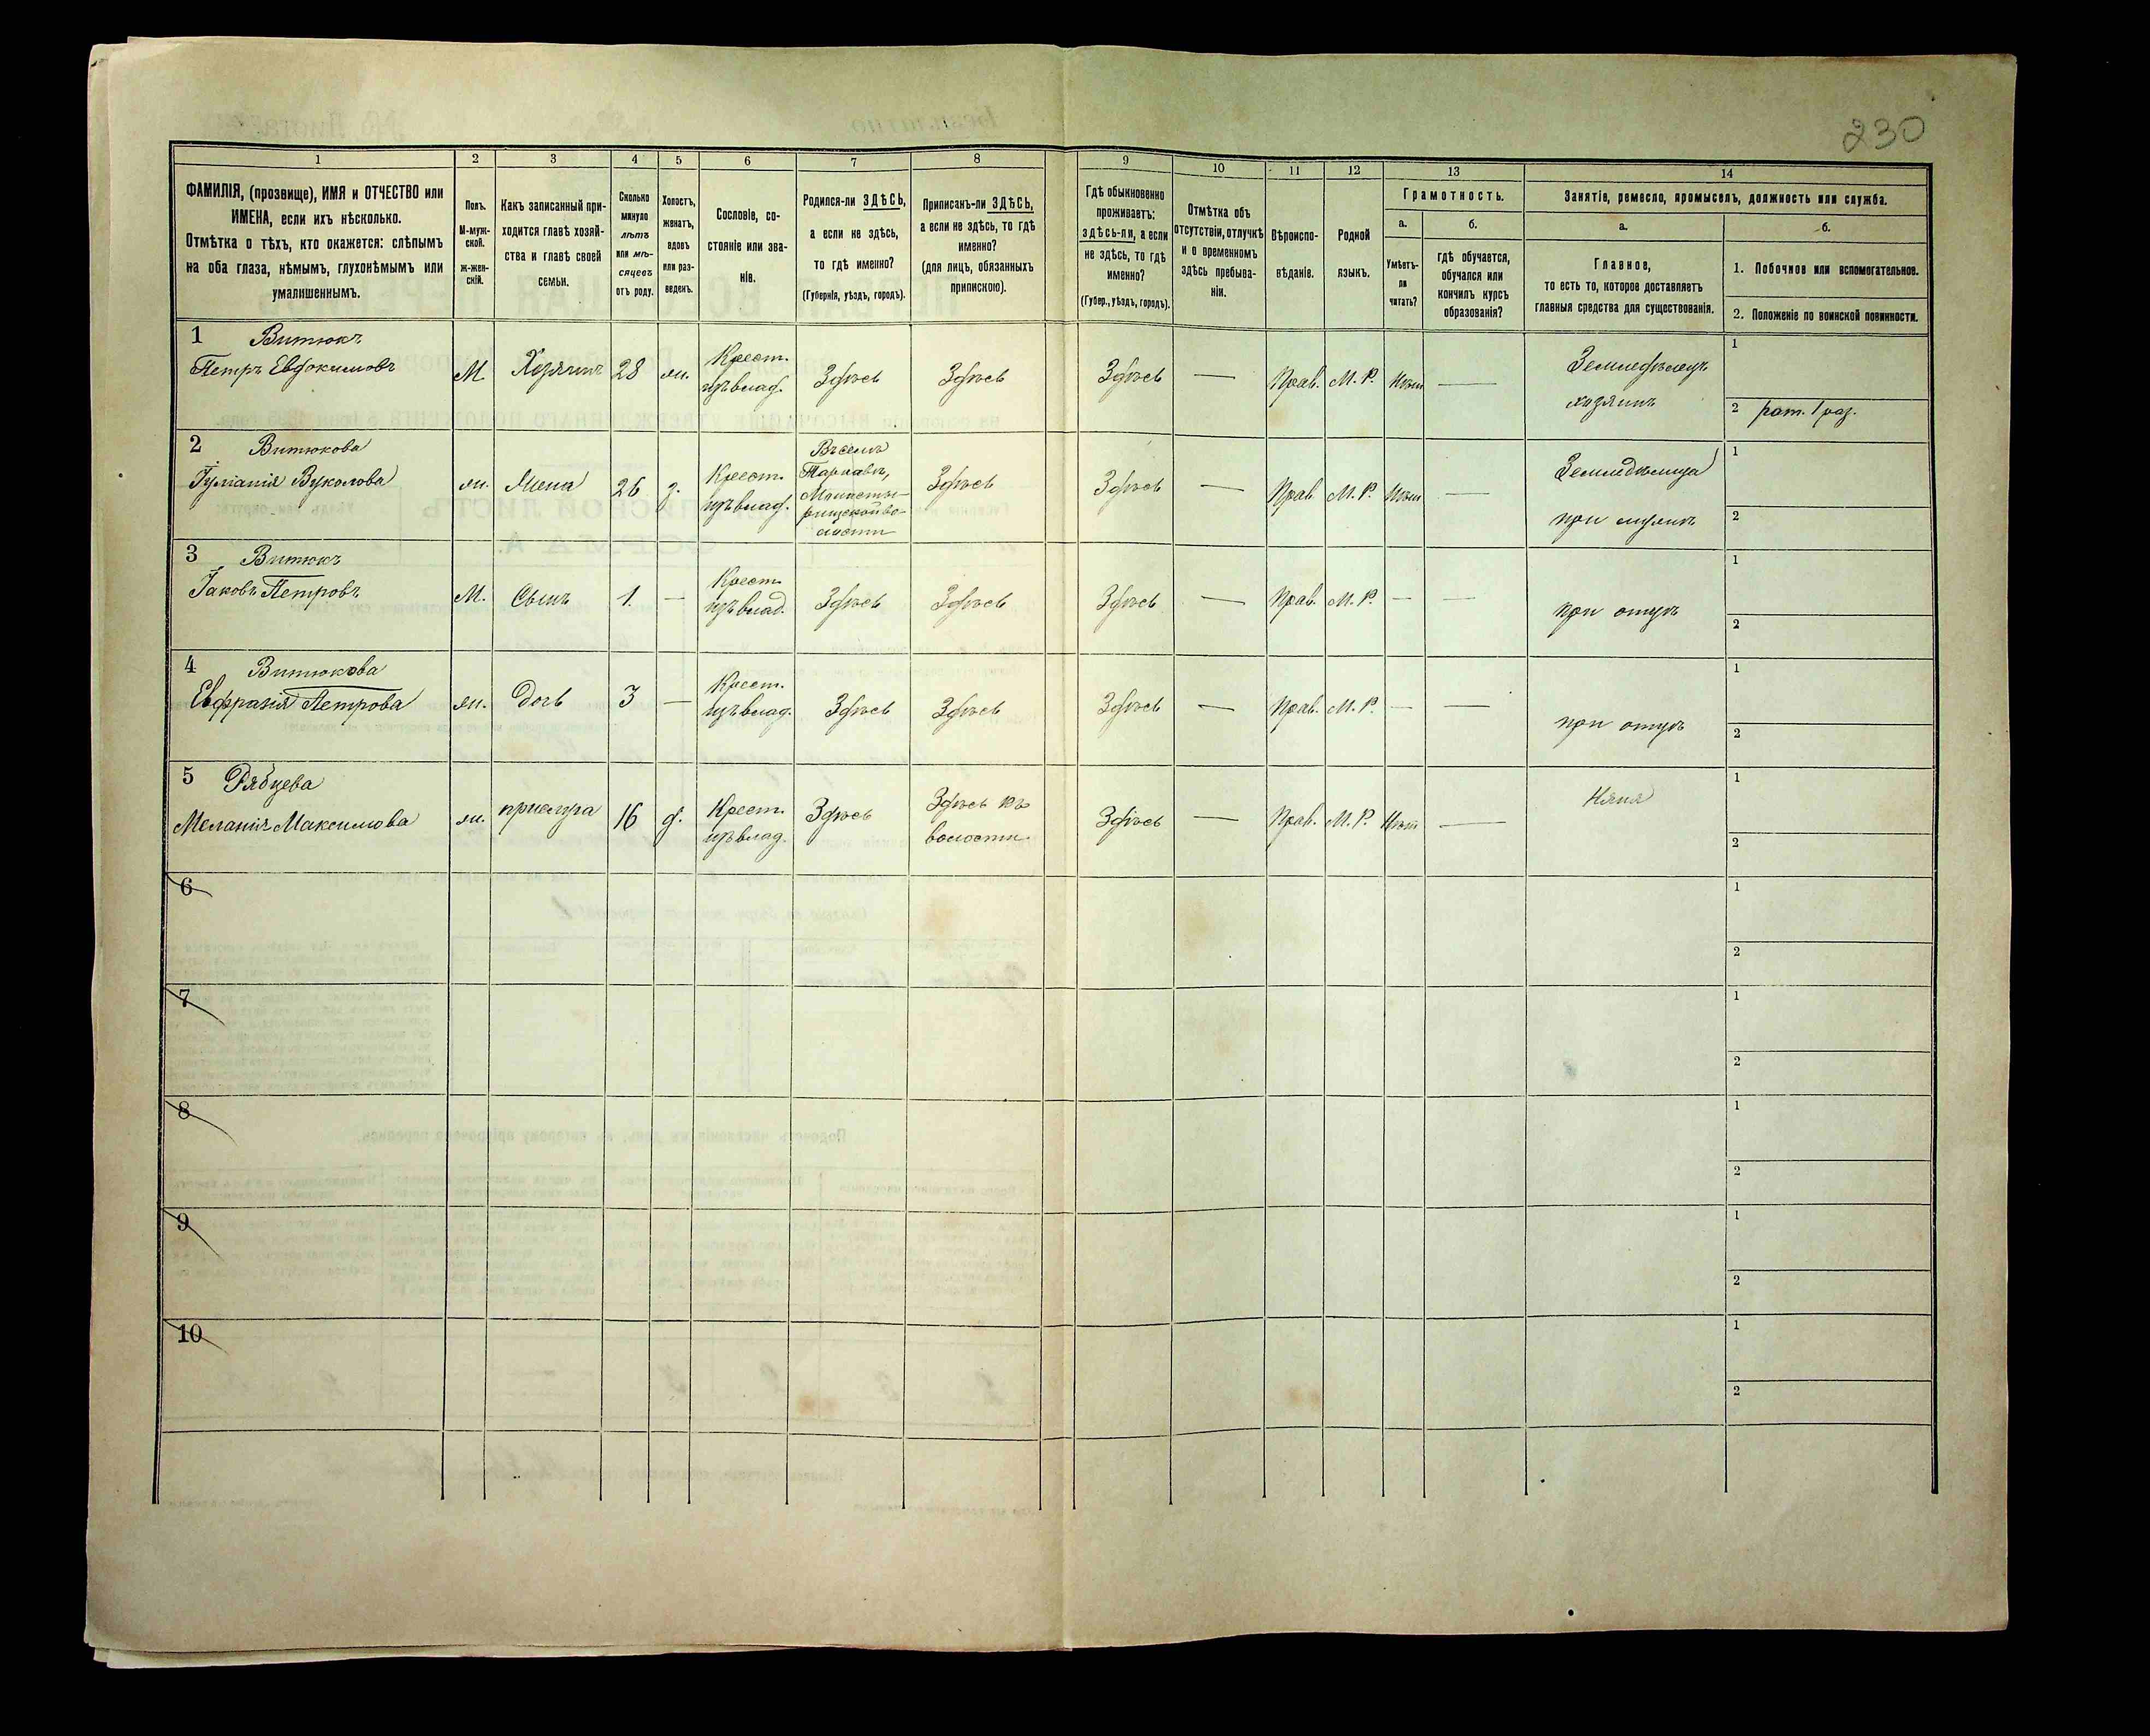 230
1
2
3
4
5
6
7
8
9
10
11
12
13
14
ФАМИЛІЯ, (прозвище), ИМЯ и ОТЧЕСТВО или
ИМЕНА, если ихъ нѣсколько.
Отмѣтка о тѣхъ, кто окажется: слѣпымъ
на оба глаза, нѣмымъ, глухонѣмымъ или
умалишеннымъ.
Полъ.
М-муж-
ской.
ж-жен-
скій.
Какъ записанный при-
ходится главѣ хозяй-
ства и главѣ своей
семьи.
Сколько
минуло
лѣтъ
или мѣ-
сяцевъ
отъ роду.
Холостъ,
женатъ,
вдовъ
или раз-
веденъ.
Сословіе, со-
стояніе или зва-
ніе.
Родился-ли ЗДѢСЬ,
а если не здѣсь,
то гдѣ именно?
(Губернія, уѣздъ, городъ).
Приписанъ-ли ЗДѢСЬ,
а если не здѣсь, то гдѣ
именно?
(для лицъ, обязанныхъ
припискою).
Гдѣ обыкновенно
проживаетъ:
здѣсь-ли, а если
не здѣсь, то гдѣ
именно?
(Губер., уѣздъ, городъ).
Отмѣтка объ
отсутствіи, отлучкѣ
и о временномъ
здѣсь пребыва-
ніи.
Вѣроиспо-
вѣданіе.
Родной
языкъ.
Грамотность.
а.
Умѣетъ-
ли
читать?
б.
гдѣ обучается,
обучался или
кончилъ курсъ
образованія?
Занятіе, ремесло, промыселъ, должность или служба.
а.
Главное,
то есть то, которое доставляетъ
главныя средства для существованія.
б.
1. Побочное или вспомогательное.
2. Положеніе по воинской повинности.
1 Витюкъ
Петръ Евдокимовъ
М.
Хозяинъ
28
ж.
Крест.
изъ влад.
Здѣсь
Здѣсь
Здѣсь
—
Прав.
М. Р.
Нѣт
—
Земледѣлецъ
хозяинъ
1
2 рат. 1 раз.
2 Витюкова
Іуліанія Вуколова
ж.
Жена
26
з.
Крест.
изъ влад.
Въ селѣ
Тарнавѣ,
Монасты-
рищской во-
лости
Здѣсь
Здѣсь
—
Прав.
М. Р.
Нѣт
—
Земледѣлица
при мужѣ
1
2
3 Витюкъ
Іаковъ Петровъ
М.
Сынъ
1.
—
Крест.
изъ влад.
Здѣсь
Здѣсь
Здѣсь
—
Прав.
М. Р.
—
—
при отцѣ
1
2
4 Витюкова
Евфразія Петрова
ж.
Дочь
3
—
Крест.
изъ влад.
Здѣсь
Здѣсь
Здѣсь
—
Прав.
М. Р.
—
—
при отцѣ
1
2
5 Рябцева
Меланія Максимова
ж.
прислуга
16
д.
Крест.
изъ влад.
Здѣсь
Здѣсь къ
волости.
Здѣсь
—
Прав.
М. Р.
Нѣт
—
Няня
1
2
6
1
2
7
1
2
8
1
2
9
1
2
10
1
2